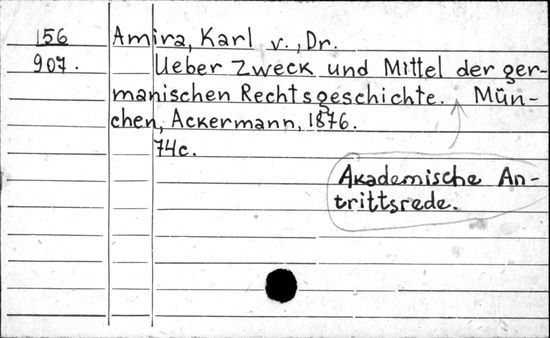 156 Amira, Karl v., Dr.
907. Ueber Zweck und Mittel der ger-
manischen Rechtsgeschichte. Mün-
chen, Ackermann, 1876.
74c.
Akademische An-
trittsrede.